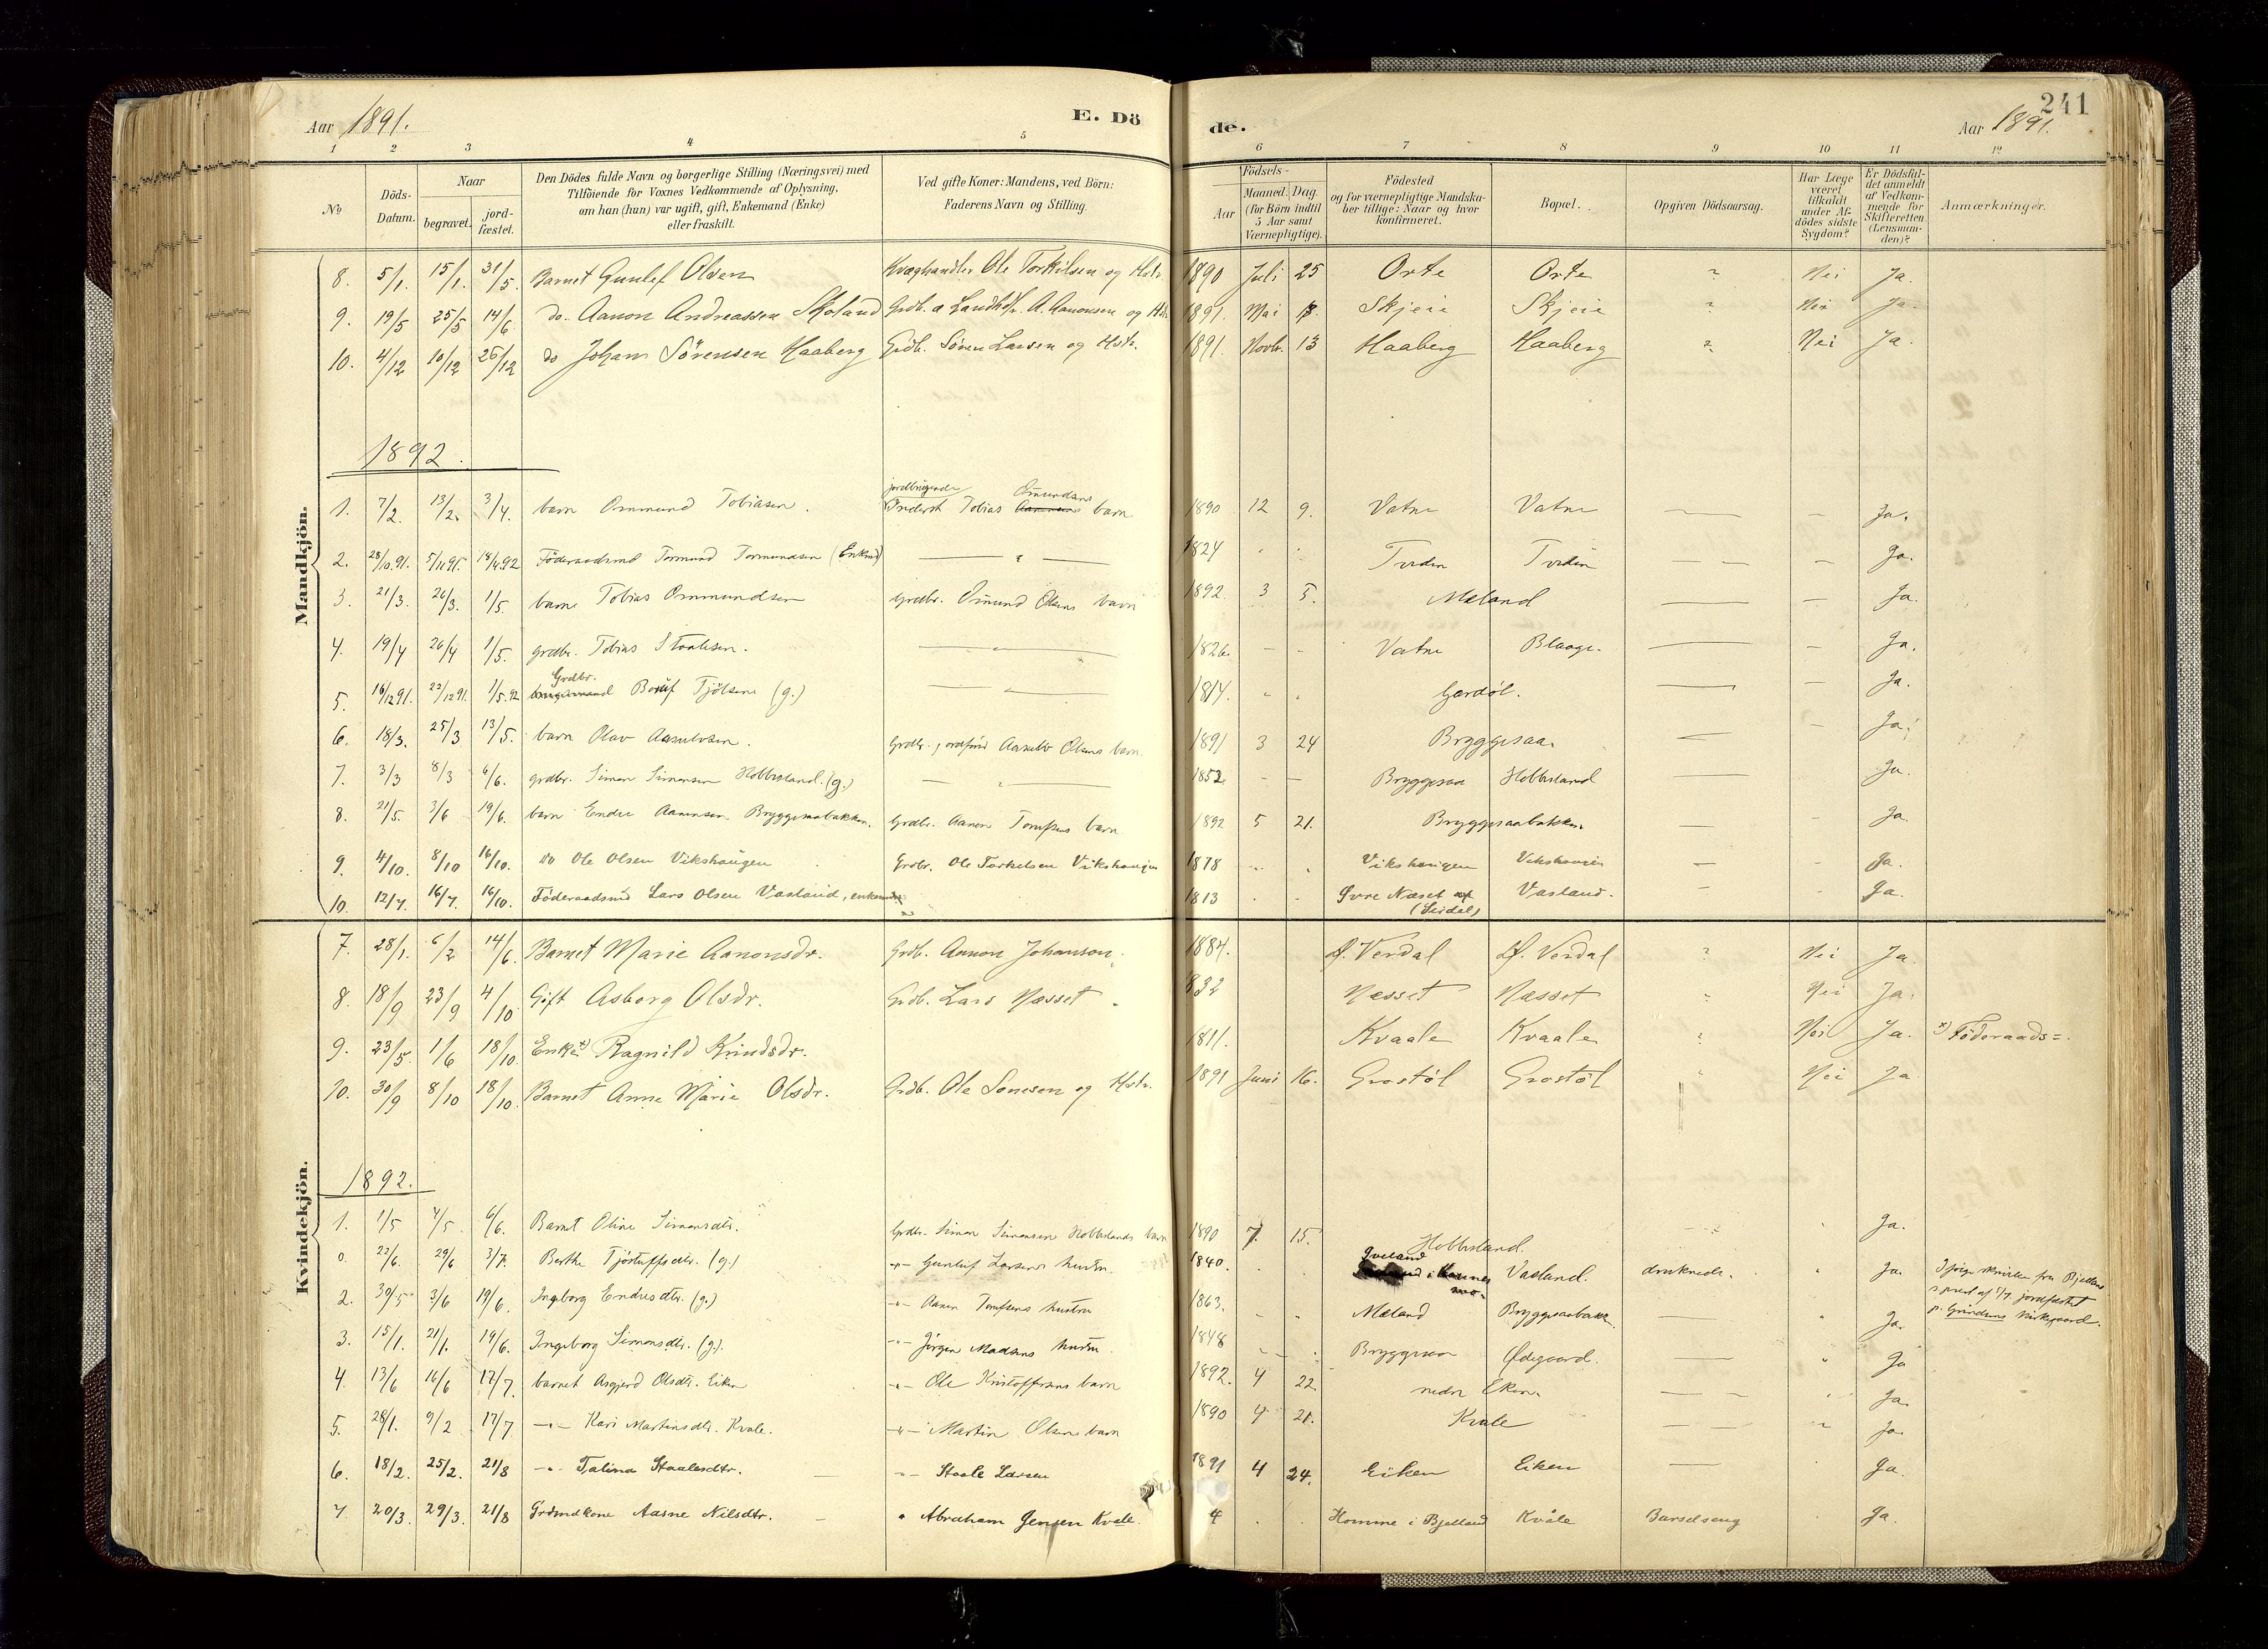 241
Aar 1891.
E. Dö
de.
Aar 1891.
1 2 3 4 5 6 7 8 9 10 11 12
No
Döds-
Datum.
Naar
begravet.
jord-
fæstet.
Den Dödes fulde Navn og borgerlige Stilling (Næringsvei) med
Tilföiende for Voxnes Vedkommende af Oplysning,
om han (hun) var ugift, gift, Enkemand (Enke)
eller fraskilt.
Ved gifte Koner: Mandens, ved Börn:
Faderens Navn og Stilling.
Födsels-
Aar
Maaned. Dag.
(for Börn indtil
5 Aar samt
Værnepligtige).
Födested
og for værnepligtige Mandska-
ber tillige: Naar og hvor
konfirmeret.
Bopæl.
Opgiven Dödsaarsag.
Har Læge
været
tilkaldt
under Af-
dödes sidste
Sygdom?
Er Dödsfal-
det anmeldt
af Vedkom-
mende for
Skifteretten
(Lensman-
den)?
Anmærkninger.
Mandkjön.
8. 5/1. 15/1. 31/5. Barnet Gunlef Olsen Kvæghandler Ole Torkilsen og Hstr. 1890 Juli 25 Orte Orte ? Nei Ja.
9. 19/5 25/5 14/6 do. Aanon Andreassen Skoland Grdb. a Landhdlr. A. Aanonsen og Hst. 1891. Mai 18. Skjeie Skjeie ? Nei Ja.
10. 4/12 10/12 26/12 do Johan Sörensen Haaberg Grdb. Sören Larsen og Hstr. 1891. Novbr. 13 Haaberg Haaberg ? Nei Ja.
1892.
1. 7/2. 13/2. 3/4. barn Ommund Tobiasen. jordbrugende Inderst Tobias Omundsens barn 1890 12 9. Vatne Vatne — — Ja.
2. 28/10.91. 5/11 91. 18/4.92 Föderaadsmd Tormund Tormundsen (Enkmd) — " — 1824 Tveden Tveden — — Ja.
3. 21/3. 26/3. 1/5 barn Tobias Ommundsen grdbr. Omund Olsens barn 1892. 3 5. Mæland — — Ja.
4. 19/4 26/4 1/5. grdbr. Tobias Staalesen. — " — 1826. - - Vatne Blaage. — — Ja.
5. 16/12 91. 23/12 91. 1/5.92 Grdbr. Tjölsen (g.) — " — 1814. Gardöl. — Ja.
6. 18/3. 25/3 13/5. barn Olav Aasulvsen. Grdbr., ordförer Aasulv Olsens barn. 1891 3 24 Bryggesaa. — - Ja.
7. 3/3 8/3 6/6. grdbr. Simon Simonsen Hobbesland. (g.) — " — 1852. - - Bryggesaa Hobbesland — Ja.
8. 21/5. 3/6 19/6. barn Endre Aanensen Bryggesaabakken. Grdbr. Aanen Tomsens barn 1892 5 21. Bryggesaabakken. — Ja.
9. 4/10. 8/10 16/10. do Ole Olsen Vikshaugen Grdbr. Ole Torkelsen Vikshaugen 1878 Vikshaugen Vikshaugen — Ja.
10. 12/7. 16/7. 16/10. Föderaadsmd Lars Olsen Vasland, enkemand 1813 Øvre Næset (Seidal) Vasland. - - Ja.
Kvindekjön.
7. 28/1. 6/2 14/6. Barnet Marie Aanonsdr. Grdb. Aanon Johanson. 1884. Ø. Verdal Ø. Verdal ? Nei Ja.
8. 18/9 23/9 4/10. Gift Asborg Olsdr. Grdb. Lars Næsset. 832 Næsset Næsset ? Nei Ja.
9. 23/5. 1/6 18/10. Enke x) Ragnild Knudsdr. 1811. Kvaale Kvaale ? Nei Ja. x) Föderaads=.
10. 30/9 8/10 18/10. Barnet Anne Marie Olsdr. Grdb. Ole Sonesen og Hstr. 1891 Juni 16. Grostöl Grostöl ? Nei Ja
1892.
1. 1/5 7/5. 6/6. Barnet Oline Simonsdtr. Grdbr. Simon Simonsen Hobbeslands barn 1890 7. 15. Hobbesland. Ja.
0. 22/6. 29/6 3/7. Berthe Tjöstulfsdtr. (g.) -"- Gunluf Larsens hustru 1840. Iveland Vasland. druknede. " Ja. Ifölge skrivelse fra Bjelland s prest af 7/7 jordfæstet p. Grindens kirkegaard.
2. 30/5 3/6 19/6. Ingeborg Endresdtr. (g.) -"- Aanen Tomsens hustru 1863. Mæland Bryggesaabakk. — " Ja.
3. 15/1. 21/1. 19/6. Ingeborg Simonsdtr. (g.). -"- Jörgen Madsens hustru 1848 Bryggesaa Ødegaard. — " Ja
4. 13/6 16/6 17/7. barnet Asgjerd Olsdtr. Eiken -"- Ole Kristoffersens barn 1892. 4 22. nedre Eken. — " Ja.
5. 28/1. 9/2 17/7 -"- Kari Martinsdtr. Kvale. -"- Martin Olsens barn 1890 4 21. Kvale — " Ja.
6. 18/2. 25/2. 21/8 -"- Talina Staalesdtr. -"- Staale Larsen 1891 4 24. Eiken Eiken — Ja.
7. 20/3. 29/3. 21/8 Grdmdkone Aasne Nilsdtr. " Abraham Jensen Kvale. Homme i Bjelland Kvåle Barselseng Ja.